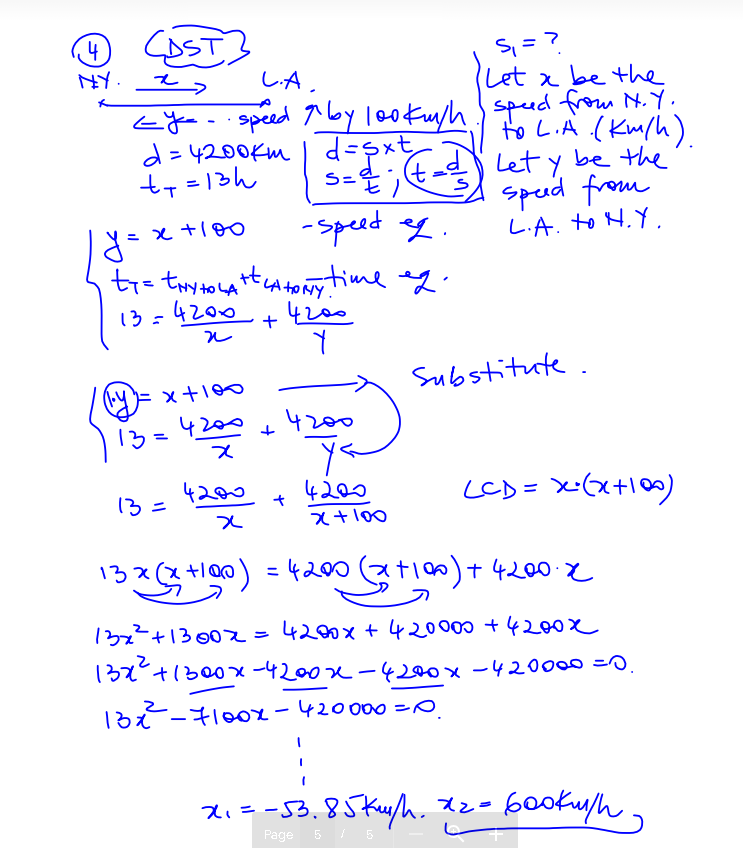 4 DST
S₁ = ?
N.Y. x → L.A.
← y - - . speed ↑ by 100 Km/h
d = 4200 Km
t_T = 13h
d = s × t
s = d/t ; t = d/s
Let x be the
speed from N.Y.
to L.A. (Km/h).
Let y be the
speed from
L.A. to N.Y.
y = x + 100 - speed eq.
t_T = t_NY to LA + t_LA to NY - time eq.
13 = 4200/x + 4200/y
1·y = x + 100
Substitute.
13 = 4200/x + 4200/y
13 = 4200/x + 4200/x+100
LCD = x·(x+100)
13x(x+100) = 4200(x+100) + 4200·x
13x² + 1300x = 4200x + 420000 + 4200x
13x² + 1300x - 4200x - 4200x - 420000 = 0.
13x² - 7100x - 420000 = 0.
x₁ = -53.85 Km/h. x₂ = 600 Km/h
Page 5 / 5 − +